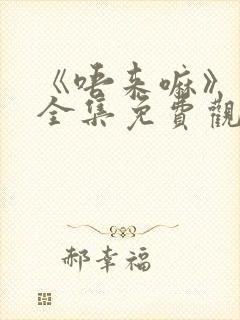 《唔来嘛》
全集免費觀
郝幸福